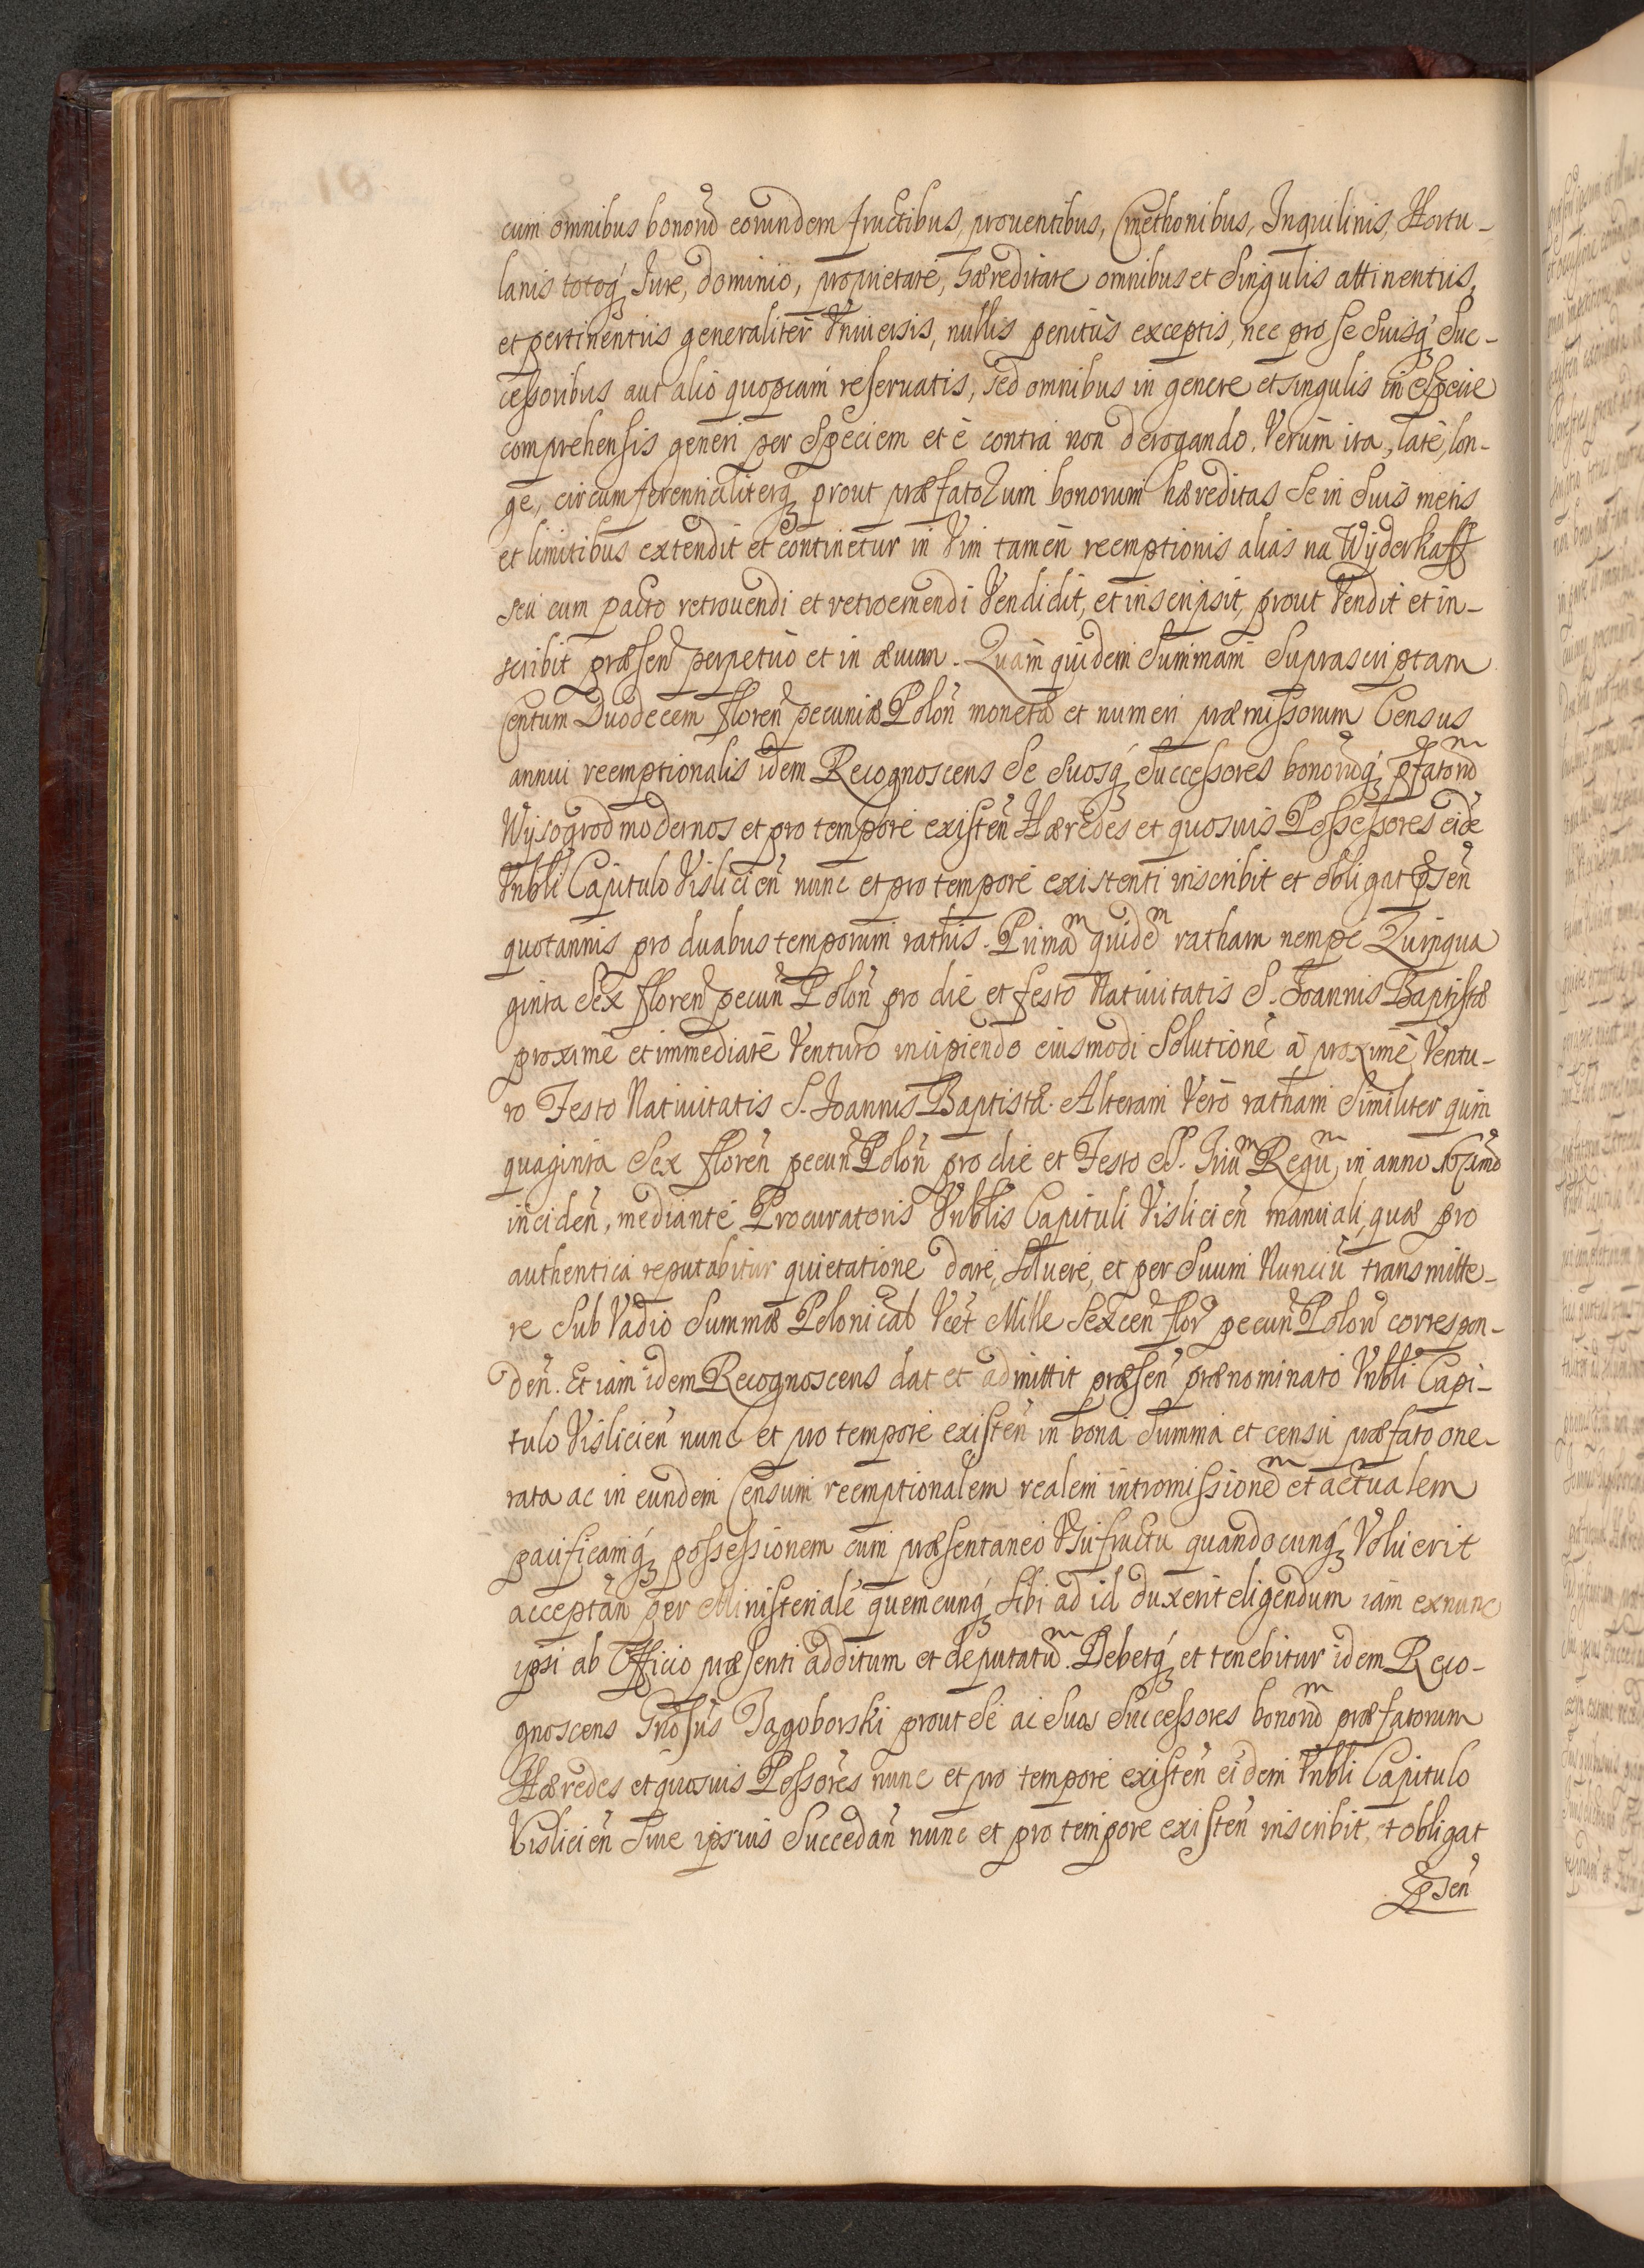 cum omnibus bonorũ eorundem fructibus, prouentibus, Cmethonibus, Inquilinis, Hortu-
lanis totoq̃ Iure, dominio, proprietate, hæreditate omnibus et Singulis attinentiis,
et pertinentiis generaliter Vniuersis, nullis penitus exceptis, nec pro se Suisq̃ Suc-
cessoribus aut alio quopiam reseruatis, sed omnibus in genere et singulis in Specie
comprehensis generi per Speciem et è contra non derogando. Verùm ita, latè, lon-
ge, circumferentialiterq̃ prout præfatorum bonorum hæreditas Se in Suis metis
et limitibus extendit et continetur in Vim tamen reemptionis alias na Wyderkaff
seu cum pacto retrouendi et retroemendi Vendidit, et inscripsit, prout Vendit et in-
scribit præsen̄ perpetuò et in æuum. Quam quidem Summam Suprascriptam
Centum Duodecem floren̄ pecuniæ Polon̄ monetæ et numeri præmissorum Census
annui reemptionalis idem Recognoscens Se Suosq̃ Successores bonorũq̃ p̃fatorũ
Wysogrod modernos et pro tempore existen̄ Hæredes et quosuis Possessores eidē
Vnbli Capitulo Vislicien̄ nunc et pro tempore existenti inscribit et obligat p̃sen̄
quotannis pro duabus temporum rathis. Primãm quidẽm ratham nempe Quinqua
ginta Sex floren̄ pecun̄ Polon̄ pro die et festo Natiuitatis S. Ioannis Baptistæ
proximè et immediatè Venturo incipiendo eiusmodi Solutionē à proximè Ventu-
ro Festo Natiuitatis S. Ioannis Baptistæ. Alteram Verò ratham Similiter quin
quaginta Sex floren̄ pecun̄ Polon̄ pro die et Festo SS. Triũm Regũm, in anno
inciden̄, mediante Procuratoris Vnblis Capituli Vislicien̄ manuali, quæ pro
authentica reputabitur quietatione dare, soluere, et per Suum Nunciū transmitte-
re Sub Vadio Summæ Polonical Vcēt Mille Sexcen̄ flor̄ pecun̄ Polon̄ correspon-
den̄. Et iam idem Recognoscens dat et admittit præsen̄ prænominato Vnbli Capi-
tulo Vislicien̄ nunc et pro tempore existen̄ in bona Summa et censu præfato one-
rata ac in eundem Censum reemptionalem realem intromissionẽm et actualem
pacificamq̃ possessionem cum præsentaneo Vsufructu quandocunq̃ Voluerit
acceptan̄ per Ministerialē quemcunq̃ Sibi ad id duxerit eligendum iam exnunc
ipsi ab Officio præsenti additum et deputatũm. Debetq̃ et tenebitur idem Reco-
gnoscens Gnosus Jagoborski prout Se ac Suos Successores bonorũm præfatorum
Hæredes et quosuis Possores nunc et pro tempore existen̄ eidem Vnbli Capitulo
Vislicien̄ Siue ipsius Succedan̄ nunc et pro tempore existen̄ inscribit, et obligat
p̃sen̄